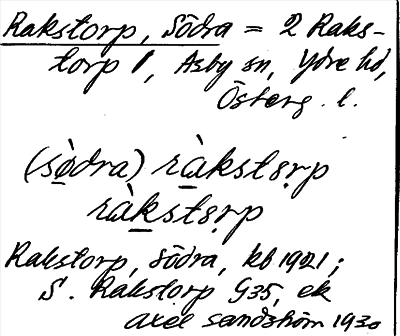 Rakstorp, Södra = 2 Raks-
torp 1, Asby sn, Ydre hd,
Österg. l.
(sò̲dra) rà̲kstọrp
ràk̲stọrp
Rakstorp, södra, kb 1921;
S. Rakstorp G35, ek
Axel Sandström 1930